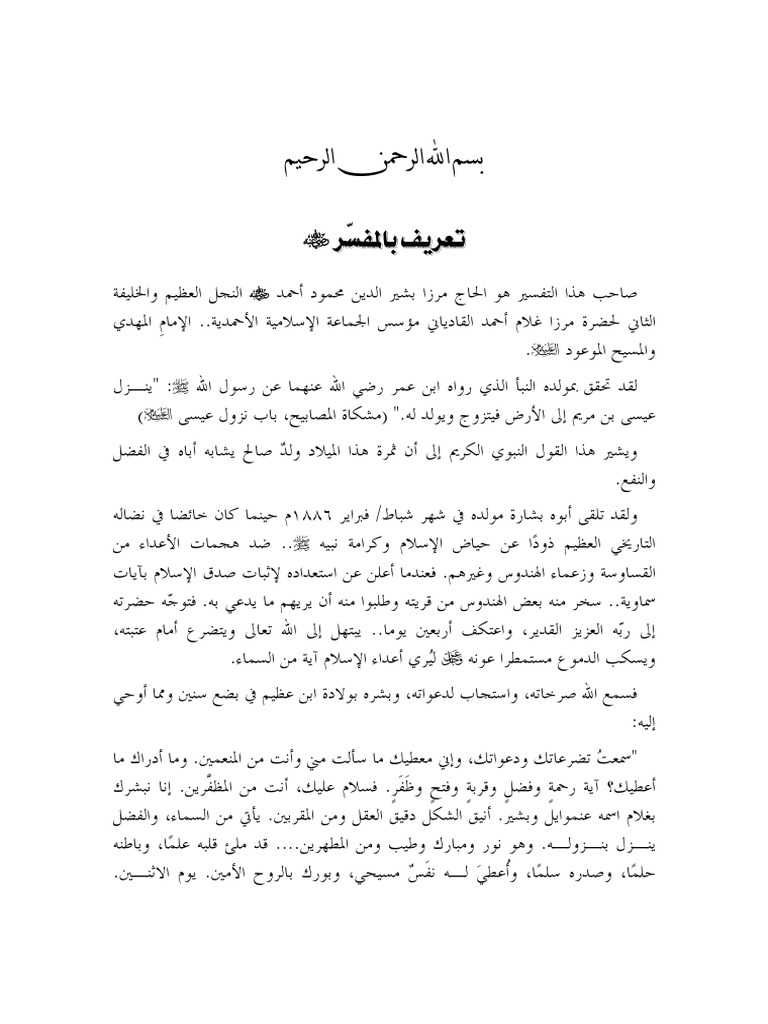 بسم الله الرحمن الرحيم
تعريف بالمفسّر ﷺ
صاحب هذا التفسير هو الحاج مرزا بشير الدين محمود أحمد النجل العظيم والخليفة
الثاني لحضرة مرزا غلام أحمد القادياني مؤسس الجماعة الإسلامية الأحمدية.. الإمامِ المهدي
والمسيح الموعود الطَّيْلاً.
لقد تحقق بمولده النبأ الذي رواه ابن عمر رضي الله عنهما عن رسول الله ﷺ: "ينـــزل
عيسى بن مريم إلى الأرض فيتزوج ويولد له." (مشكاة المصابيح، باب نزول عيسى)
ويشير هذا القول النبوي الكريم إلى أن ثمرة هذا الميلاد ولدٌ صالح يشابه أباه في الفضل
والنفع.
ولقد تلقى أبوه بشارة مولده في شهر شباط/ فبراير ١٨٨٦م حينما كان خائضا في نضاله
التاريخي العظيم ذودًا عن حياض الإسلام وكرامة نبيه ﷺ.. ضد هجمات الأعداء من
القساوسة وزعماء الهندوس وغيرهم. فعندما أعلن عن استعداده لإثبات صدق الإسلام بآيات
سماوية.. سخر منه بعض الهندوس من قريته وطلبوا منه أن يريهم ما يدعي به. فتوجّه حضرته
إلى ربّه العزيز القدير، واعتكف أربعين يوما.. يبتهل إلى الله تعالى ويتضرع أمام عتبته،
ويسكب الدموع مستمطرا عونه ليُري أعداء الإسلام آية من السماء.
فسمع الله صرخاته، واستجاب لدعواته، وبشره بولادة ابن عظيم في بضع سنين ومما أوحي
إليه:
"سمعتُ تضرعاتك ودعواتك، وإني معطيك ما سألت مني وأنت من المنعمين. وما أدراك ما
أعطيك؟ آية رحمةٍ وفضلٍ وقربةٍ وفتحٍ وظَفَرٍ. فسلام عليك، أنت من المظفَّرين. إنا نبشرك
بغلام اسمه عنموايل وبشير. أنيق الشكل دقيق العقل ومن المقربين. يأتي من السماء، والفضل
ينـــزل بنـــزولـــه. وهو نور ومبارك وطيب ومن المطهرين.... قد ملئ قلبه علمًا، وباطنه
حلمًا، وصدره سلمًا، وأُعطيَ لـــه نفَسٌ مسيحي، وبورك بالروح الأمين. يوم الاثنـــين.